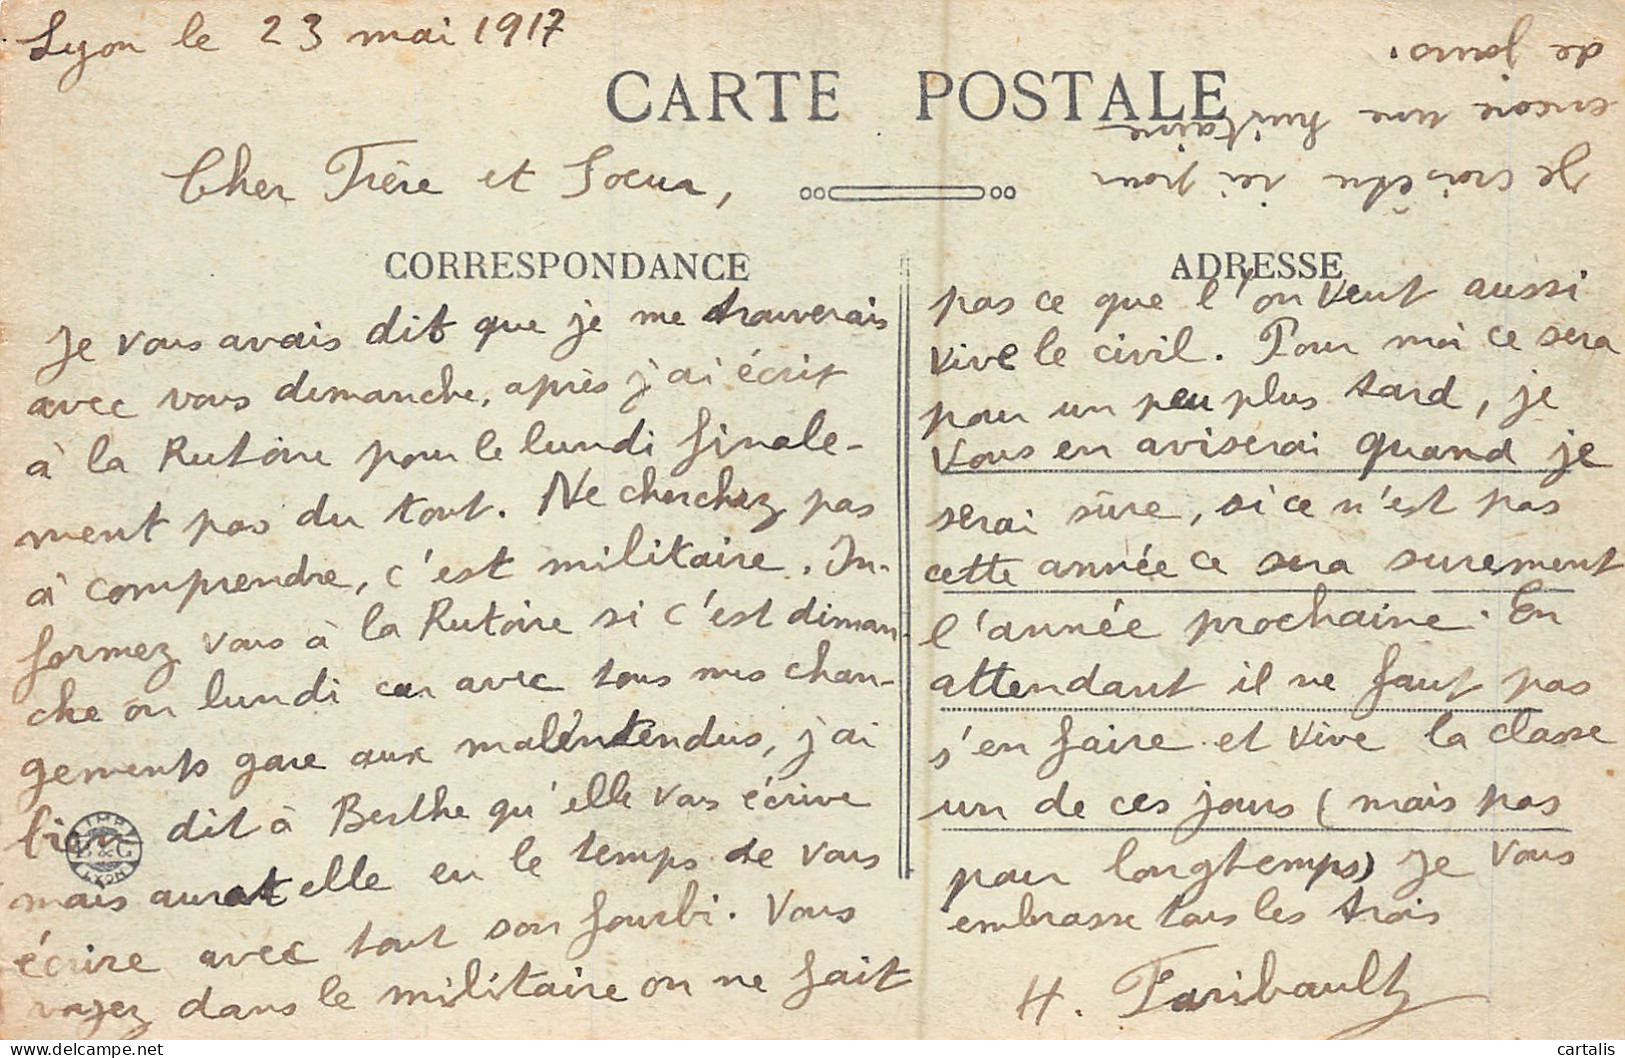 Lyon le 23 mai 1917
CARTE POSTALE
Cher Frère et Soeur,
CORRESPONDANCE
Je vous avais dit que je me trouverais
avec vous dimanche, après j'ai écrit
à la Rutoire pour le lundi finale-
ment pas du tout. Ne cherchez pas
à comprendre, c'est militaire. In-
formez vous à la Rutoire si c'est diman-
che ou lundi car avec tous mes chan-
gements gare aux malentendus, j'ai
bien dit à Berthe qu'elle vous écrive
mais aurat elle eu le temps de vous
écrire avec tout son fourbi. Vous
voyez dans le militaire on ne fait
ADRESSE
pas ce que l'on veut aussi
vive le civil. Pour moi ce sera
pour un peu plus tard, je
vous en aviserai quand je
serai sûre, si ce n'est pas
cette année ce sera surement
l'année prochaine. En
attendant il ne faut pas
s'en faire et vive la classe
un de ces jours (mais pas
pour longtemps) je vous
embrasse tous les trois
H. Faribault
Je crois être ici pour
encore une huitaine
de jours.
IMP.
B&G
LYON
cartalis